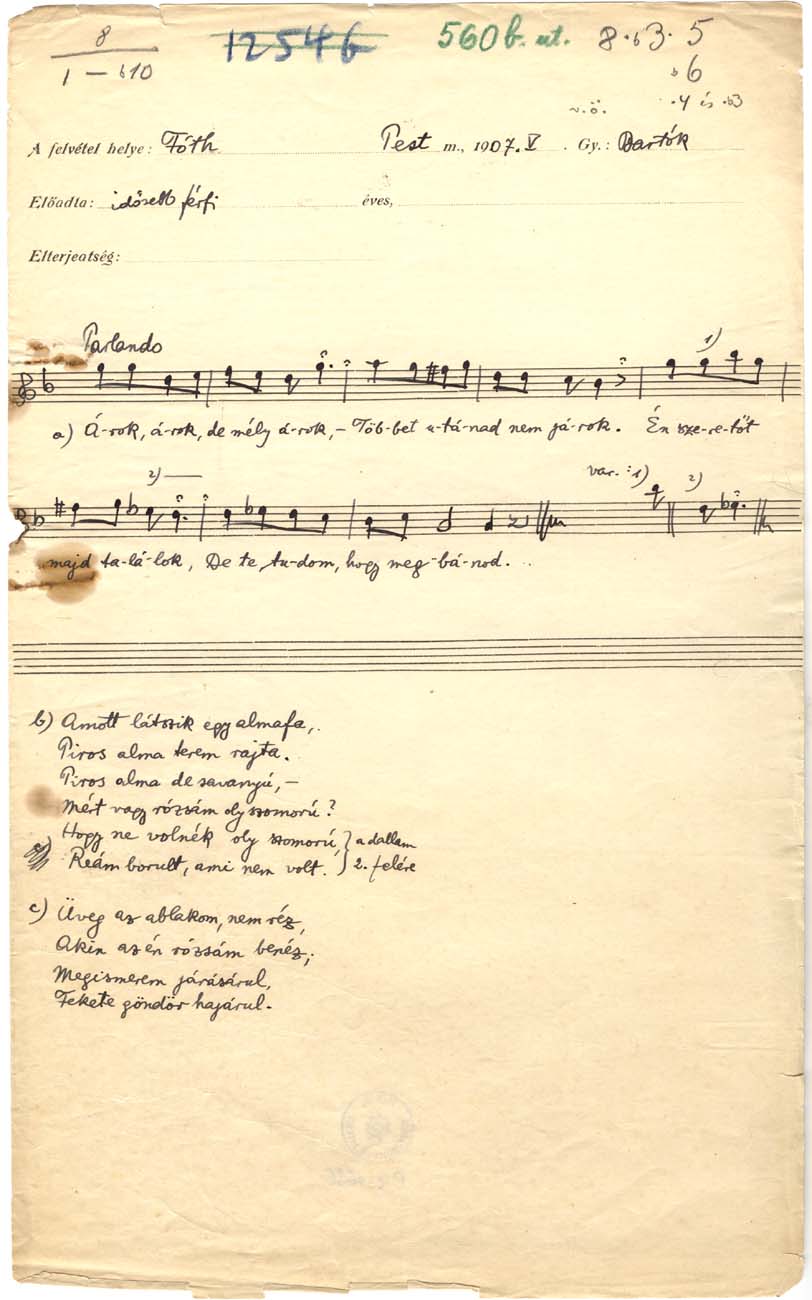 8 12546 560 b. ut. 8 · b3 · 5
1 – b10 b6
v.ö. ·4 és ·b3
A felvétel helye: Fóth Pest m., 1907. V. Gy.: Bartók
Előadta: idősebb férfi éves,
Elterjeatség:
Parlando
1)
a) Á-rok, á-rok, de mély á-rok, – Töb-bet u-tá-nad nem já-rok. Én sze-re-tőt
2) var.: 1) 2)
majd ta-lá-lok, De te, tu-dom, hogy meg-bá-nod.
b) Amott látszik egy almafa,
Piros alma terem rajta.
Piros alma de savanyú, –
Mért vagy rózsám oly szomorú?
Hogy ne volnék oly szomorú, } a dallam
Reám borult, ami nem volt. } 2. felére
c) Üveg az ablakom, nem réz,
Akin az én rózsám benéz;
Megismerem járásárul,
Fekete göndör hajárul.